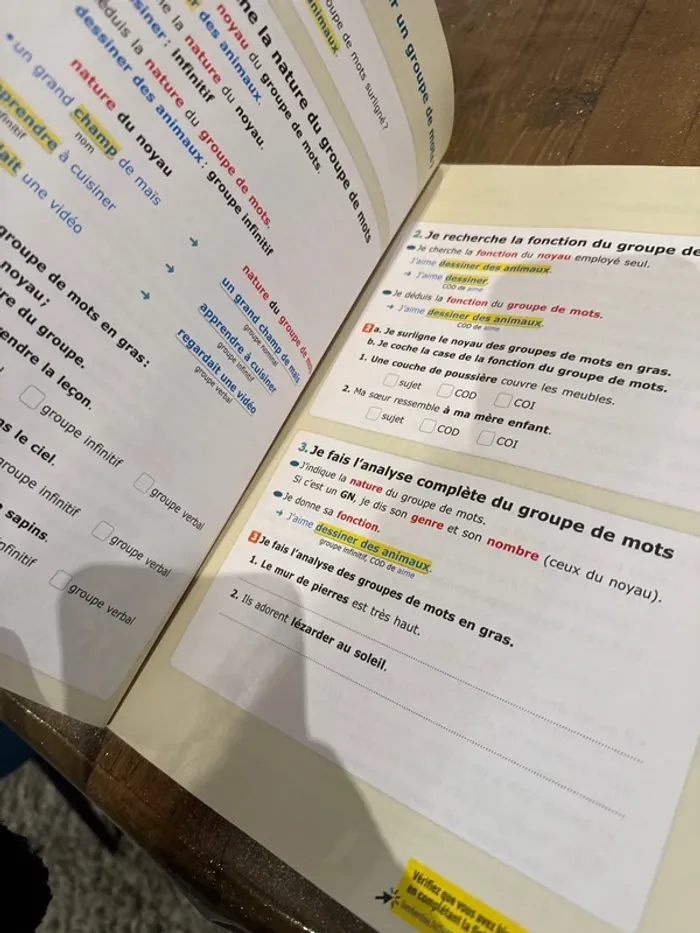 oupe de mots surligné?
animaux.
r un groupe de mots
ne la nature du groupe de mots
noyau du groupe de mots.
des animaux.
la nature du noyau.
ssiner : infinitif
éduis la nature du groupe de mots.
dessiner des animaux : groupe infinitif
nature du noyau
nature du groupe de mots
• un grand champ de maïs
nom
→ un grand champ de maïs
groupe nominal
prendre à cuisiner
infinitif
→ apprendre à cuisiner
groupe infinitif
dait une vidéo
→ regardait une vidéo
groupe verbal
groupe de mots en gras :
noyau ;
re du groupe.
endre la leçon.
groupe infinitif groupe verbal
s le ciel.
groupe infinitif groupe verbal
sapins.
infinitif groupe verbal
2. Je recherche la fonction du groupe de
Je cherche la fonction du noyau employé seul.
J'aime dessiner des animaux.
→ J'aime dessiner.
COD de aime
Je déduis la fonction du groupe de mots.
→ J'aime dessiner des animaux.
COD de aime
2 a. Je surligne le noyau des groupes de mots en gras.
b. Je coche la case de la fonction du groupe de mots.
1. Une couche de poussière couvre les meubles.
sujet COD COI
2. Ma sœur ressemble à ma mère enfant.
sujet COD COI
3. Je fais l'analyse complète du groupe de mots
J'indique la nature du groupe de mots.
Si c'est un GN, je dis son genre et son nombre (ceux du noyau).
Je donne sa fonction.
→ J'aime dessiner des animaux.
groupe infinitif, COD de aime
3 Je fais l'analyse des groupes de mots en gras.
1. Le mur de pierres est très haut.
2. Ils adorent lézarder au soleil.
Vérifiez que vous avez bi
en complétant la